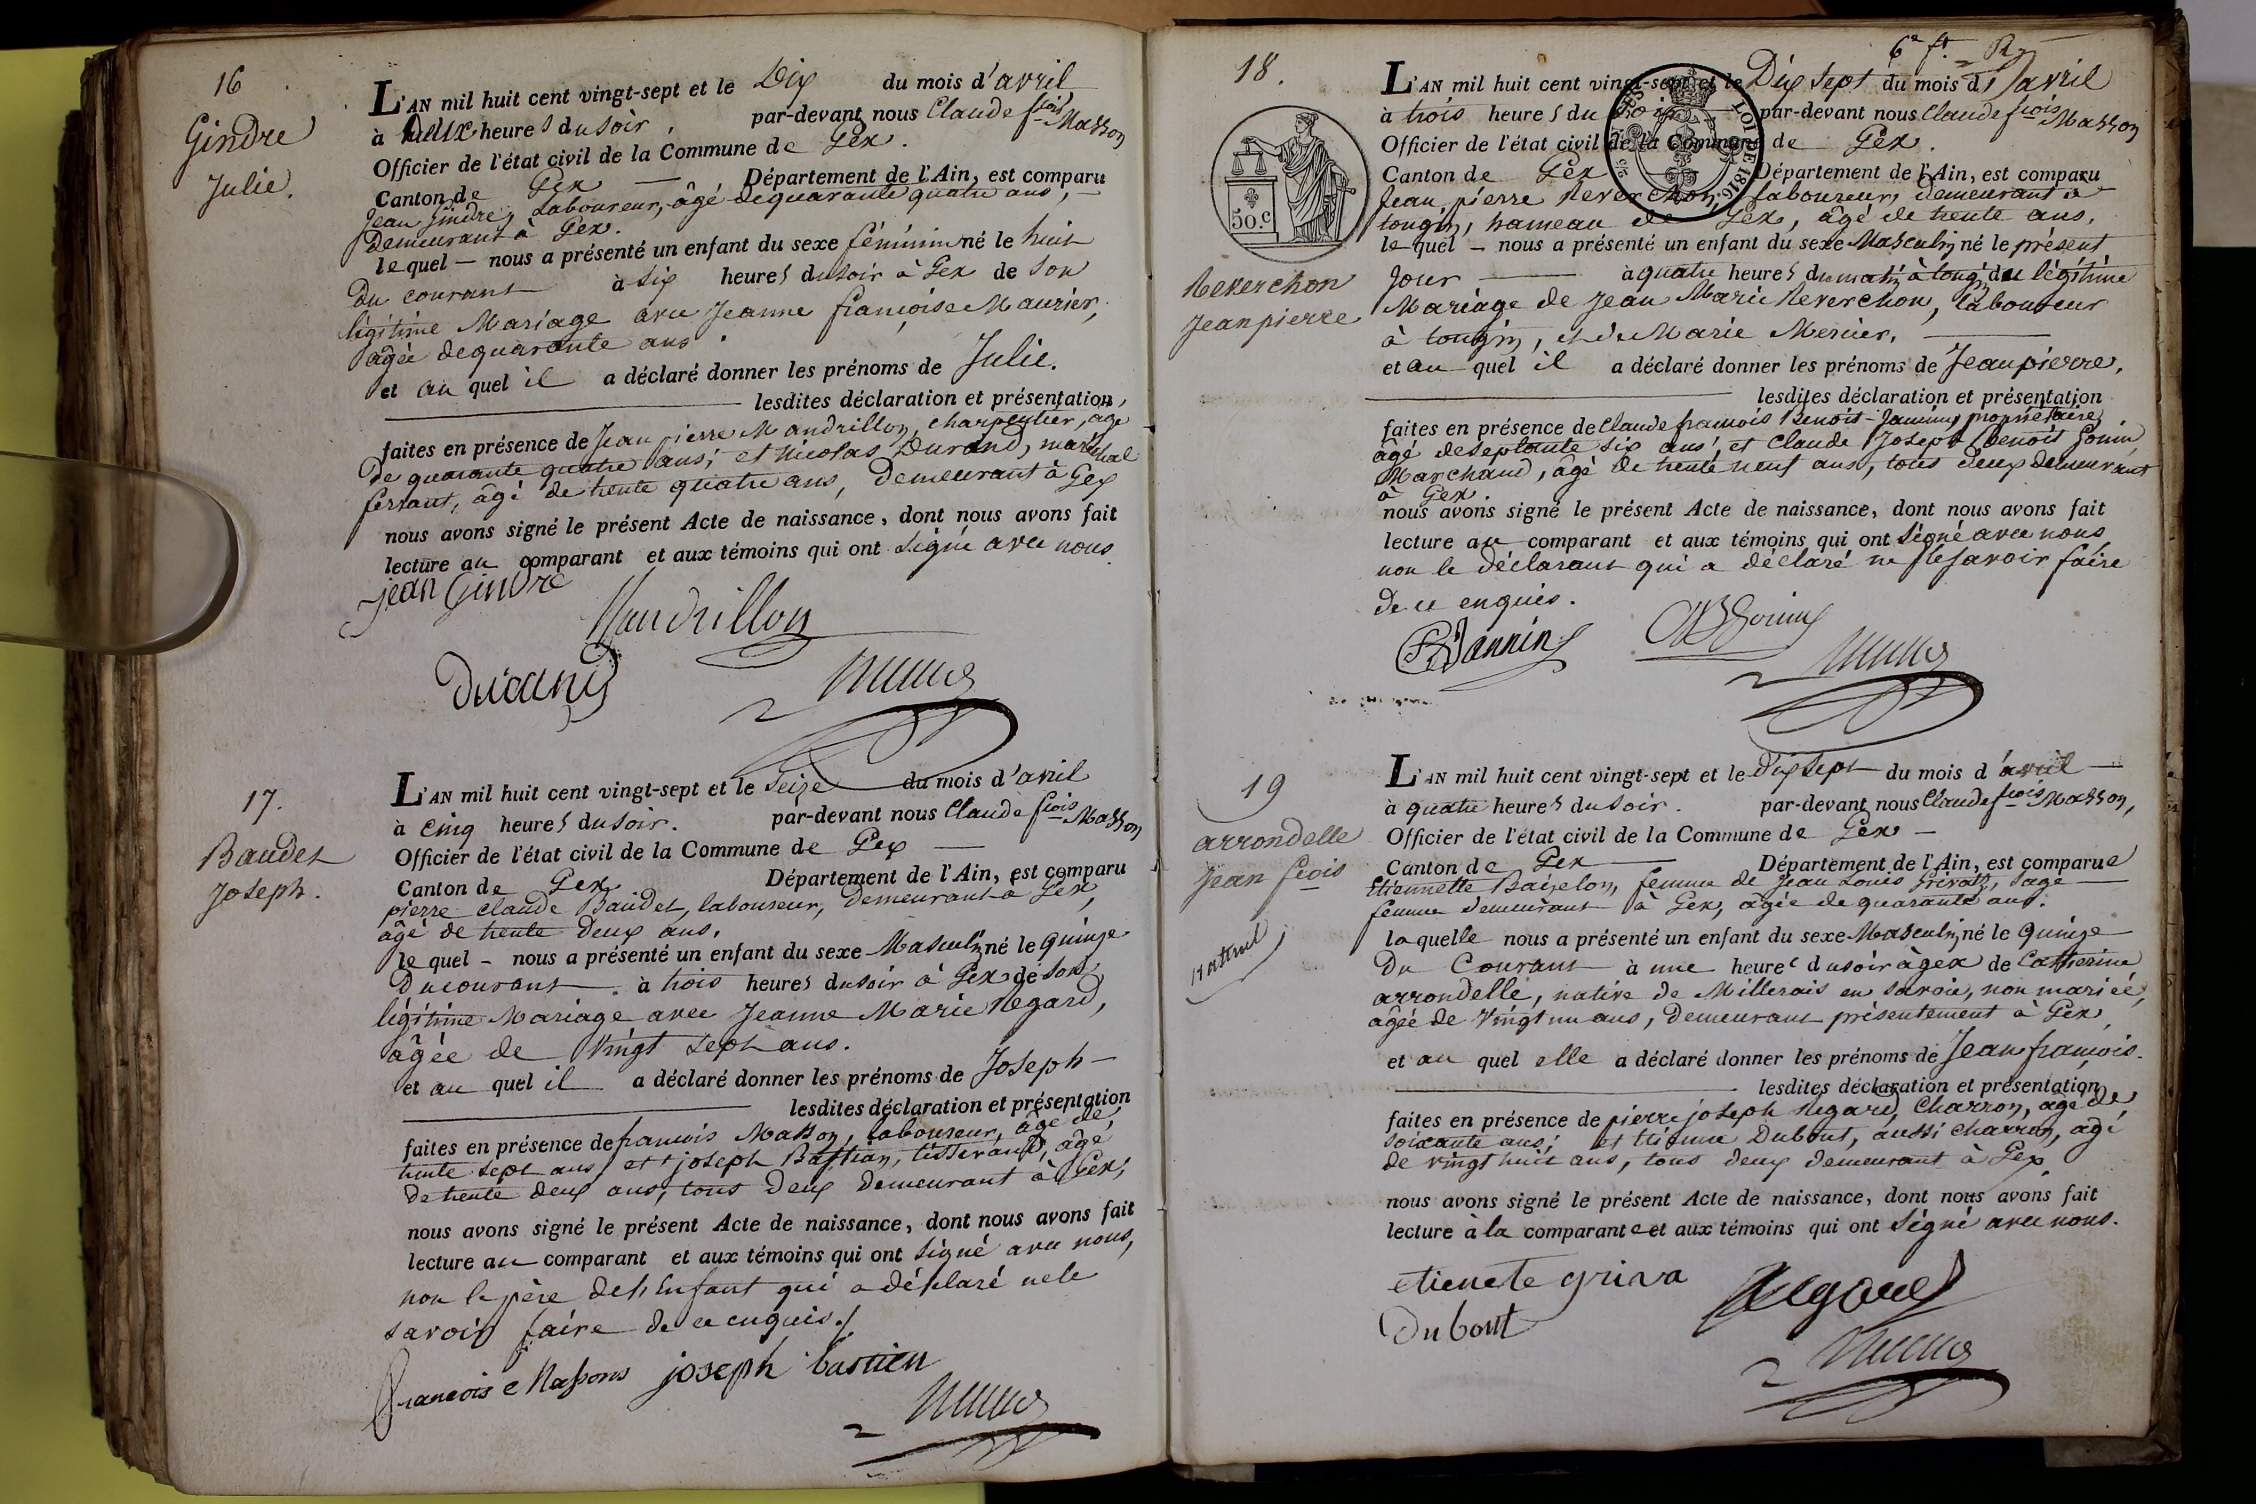 16
Gindre
Julie.
L'AN mil huit cent vingt-sept et le Dix du mois d'avril
à Deux heures du soir, par-devant nous Claude fçois Masson
Officier de l'état civil de la Commune de Gex.
Canton de Gex — Département de l'Ain, est comparu
Jean Gindre, Laboureur, âgé de quarante quatre ans,
Demeurant à Gex.
lequel — nous a présenté un enfant du sexe féminin né le huit
du courant à six heures du soir à Gex de son
légitime Mariage avec Jeanne françoise Maurier,
âgée de quarante ans.
et au quel il a déclaré donner les prénoms de Julie.
lesdites déclaration et présentation,
faites en présence de Jean pierre Mandrillon, charpentier, âgé
de quarante quatre ans; et Nicolas Durand, maréchal
ferrant, âgé de trente quatre ans, Demeurant à Gex
nous avons signé le présent Acte de naissance, dont nous avons fait
lecture au comparant et aux témoins qui ont signé avec nous.
jean Gindre
Mandrillon
Durand
17.
Baudet
Joseph.
L'AN mil huit cent vingt-sept et le Seize du mois d'avril
à cinq heures du soir. par-devant nous Claude fçois Masson
Officier de l'état civil de la Commune de Gex —
Canton de Gex Département de l'Ain, est comparu
pierre claude Baudet, laboureur, demeurant à Gex,
âgé de trente deux ans.
lequel - nous a présenté un enfant du sexe Masculin né le quinze
du courant à trois heures du soir à Gex de son
légitime Mariage avec Jeanne Marie Regard,
âgée de vingt sept ans.
et au quel il a déclaré donner les prénoms de Joseph —
lesdites déclaration et présentation
faites en présence de françois Masson, laboureur, âgé de
trente sept ans, et joseph Bastian, tisserand, âgé
de trente deux ans, tous deux demeurant à Gex;
nous avons signé le présent Acte de naissance, dont nous avons fait
lecture au comparant et aux témoins qui ont signé avec nous,
non le père de l'Enfant qui a déclaré ne le
savoir faire de ce enquis./
francois Massons joseph bastien
6e ft R
18.
50.c
LOI DE 1816
Reverchon
Jean pierre
L'AN mil huit cent vingt-sept et le Dix sept du mois d'avril
à trois heures du soir par-devant nous Claude fçois Masson
Officier de l'état civil de la Commune de Gex.
Canton de Gex Département de l'Ain, est comparu
Jean pierre Reverchon, laboureur, demeurant à
tougin, hameau de Gex, âgé de trente ans.
lequel — nous a présenté un enfant du sexe Masculin né le présent
Jour à quatre heures du matin à tougin du légitime
Mariage de Jean Marie Reverchon, laboureur
à tougin, et de Marie Mercier.
et au quel il a déclaré donner les prénoms de Jean pierre.
lesdites déclaration et présentation
faites en présence de Claude francois Benoit-Jannin, propriétaire,
âgé de septante six ans, et Claude Joseph Benoit Gonin
Marchand, âgé de trente neuf ans, tous deux demeurant
à Gex.
nous avons signé le présent Acte de naissance, dont nous avons fait
lecture au comparant et aux témoins qui ont signé avec nous
non le déclarant qui a déclaré ne le savoir faire
de ce enquis.
19
arrondelle
Jean fçois
naturel
L'AN mil huit cent vingt-sept et le dix sept du mois d'avril —
à quatre heures du soir. par-devant nous Claude fçois Masson,
Officier de l'état civil de la Commune de Gex —
Canton de Gex Département de l'Ain, est comparue
Etiennette femme de Jean Louis Grivat, sage
femme demeurant à Gex, âgée de quarante ans.
laquelle nous a présenté un enfant du sexe Masculin né le quinze
Du Courant à une heure du soir à gex de Catherine
arrondelle, native de en savoie, non mariée,
âgée de vingt un ans, demeurant présentement à Gex
et au quel elle a déclaré donner les prénoms de Jean françois.
lesdites déclaration et présentation
faites en présence de pierre joseph Regard, Charron, âgé de
soixante ans; et Etienne Dubout, aussi charron, âgé
de vingt huit ans, tous deux demeurant à Gex
nous avons signé le présent Acte de naissance, dont nous avons fait
lecture à la comparante et aux témoins qui ont signé avec nous.
etienete griva
Regard
Dubout